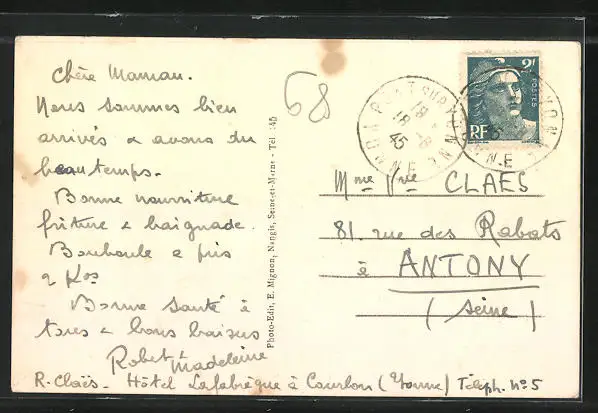 Chère Maman.
Nous sommes bien
arrivés & avons du
beau temps.
Bonne nourriture
friture & baignade.
Bouboule a pris
2 Kos
Bonne santé à
tores & bons baisers
Robert &
Madeleine
R. Claës - Hôtel Lafabrègue à Courlon (Yonne) Téleph. n°5
Photo-Edit, E. Mignon, Nangis, Seine-et-Marne - Tél. 145
68
PONT SUR YONNE
18 -8
45
YONNE
2f
POSTES
RF
Mme Vve CLAES
81. rue des Rabats
à ANTONY
(Seine)